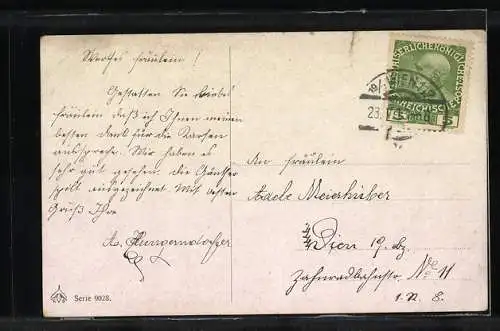 Wertes Fräulein!
Gestatten Sie liebes
Fräulein daß ich Ihnen meinen
besten Dank für die Karten
ausspreche. Wir haben es
sehr gut gesehen. die Günther
spielt ausgezeichnet. Mit besten
Gruß Ihre
A. Hungendorfer
Serie 9028.
KAISERLICHEKÖNIGLICHE
5
An Fräulein
Adele Meierhuber
Wien 19. bz.
Zahnradbahnstr. No 11
1. St. 8.